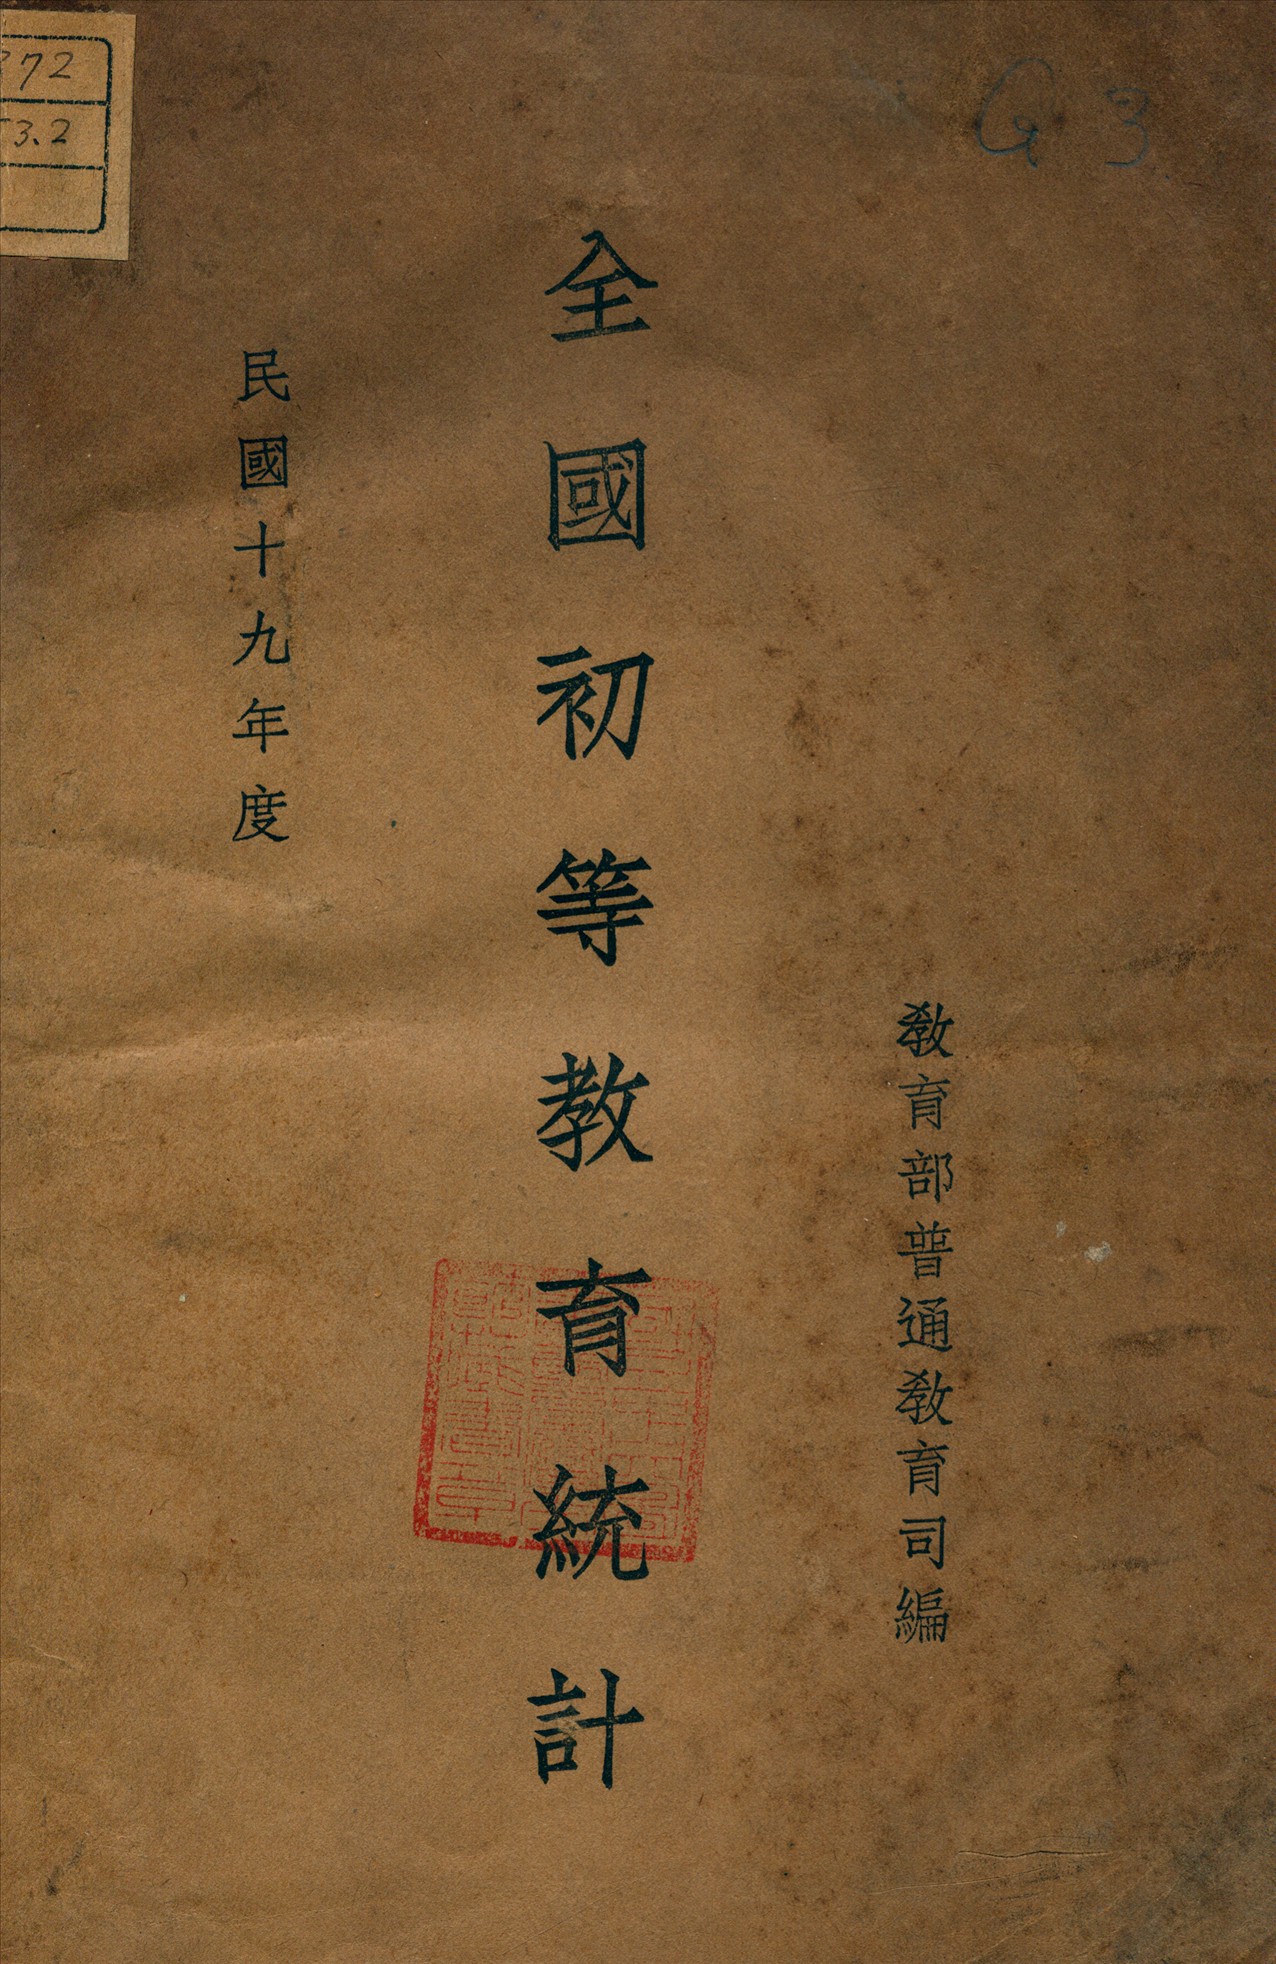 教育部普通教育司編
全國初等教育統計
民國十九年度
G 3
72
3.2